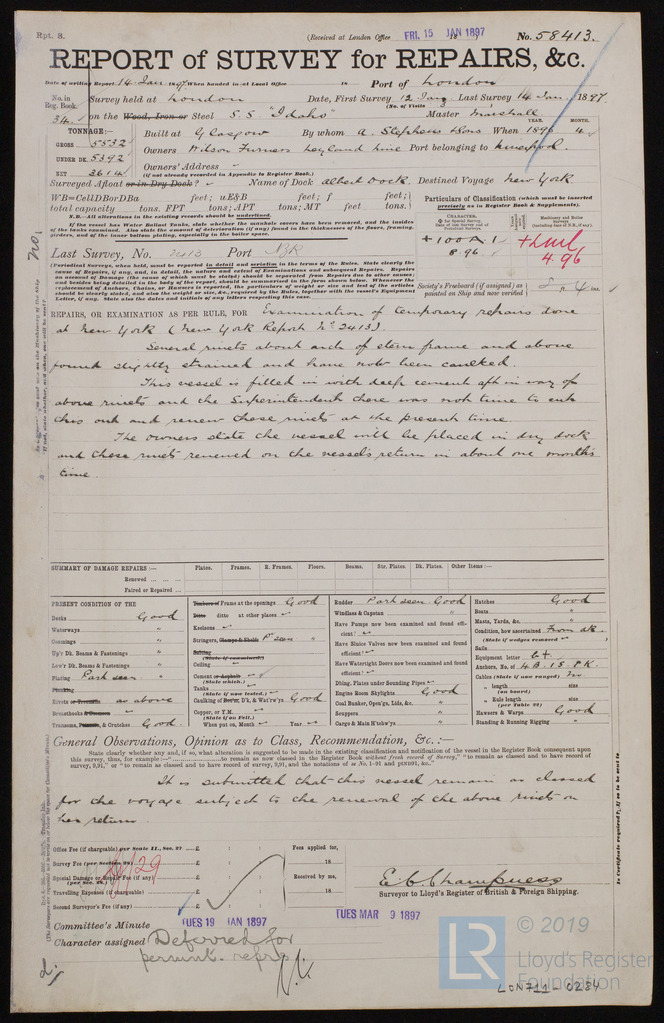 Rpt. 8.
(Received at London Office FRI. 15 JAN 1897 No. 58413.
REPORT of SURVEY for REPAIRS, &c.
Date of writing Report 14 Jan 1897 When handed in at Local Office 18 Port of London
No. in Reg. Book. Survey held at London Date, First Survey 12 Jan Last Survey 14 Jan 1897
(No. of Visits
34 on the Wood, Iron or Steel S.S. "Idaho" Master Marshall
TONNAGE:— YEAR. MONTH.
GROSS 5532 Built at Glasgow By whom A. Stephen & Sons When 1896 4
UNDER DK. 5392 Owners Wilson Furness Leyland Line Port belonging to Liverpool
NET 3614 Owners' Address
(if not already recorded in Appendix to Register Book.)
Surveyed Afloat or in Dry Dock? Name of Dock Albert Dock Destined Voyage New York
WB=CellDBorDBa feet; uE&B feet; f feet;
total capacity tons. FPT tons; APT tons; MT feet tons.
N.B.—All alterations in the existing records should be underlined.
Particulars of Classification (which must be inserted precisely as in Register Book & Supplements).
+ 100 A 1
8.96
+LMC
4.96
Last Survey, No. 2413 Port NYK
Society's Freeboard (if assigned) as painted on Ship and now verified
REPAIRS, OR EXAMINATION AS PER RULE, FOR Examination of temporary repairs done
at New York (New York Report No. 2413)
Several rivets about arch of stern frame and above
found slightly strained and have now been caulked.
This vessel is filled in with deep cement aft in way of
above rivets and the Superintendent there was not time to cut
this out and renew these rivets at the present time.
The owners state the vessel will be placed in dry dock
and these rivets renewed on the vessel's return in about one month's
time.
SUMMARY OF DAMAGE REPAIRS:— Plates. Frames. R. Frames. Floors. Beams. Str. Plates. Dk. Plates. Other Items:—
Renewed
Faired or Repaired
PRESENT CONDITION OF THE
Decks Good
Waterways "
Comings "
Up'r Dk. Beams & Fastenings "
Low'r Dk. Beams & Fastenings "
Plating Part seen "
Planking
Rivets or Treenails as above
Breasthooks
Transoms, Pointers, & Crutches Good
Timbers or Frame at the openings Good
Ditto ditto at other places
Keelsons
Stringers, Clamps & Shelfs Pt seen "
Salting
(State if examined.)
Ceiling
Cement or Asphalt
(State which.)
Tanks
(State if now tested.)
Caulking of Bot'm, D'k, & Wat'rw'ys Good
Copper, or Y.M.
(State if on Felt.)
When put on, Month Year
Rudder Part seen Good
Windlass & Capstan "
Have Pumps now been examined and found efficient?
Have Sluice Valves now been examined and found efficient?
Have Watertight Doors now been examined and found efficient?
Dbling. Plates under Sounding Pipes
Engine Room Skylights Good
Coal Bunker, Open'gs, Lids, &c. "
Scuppers "
Cargo & Main H'tchw'ys "
Hatches Good
Boats "
Masts, Yards, &c. "
Condition, how ascertained From dk.
(State if wedges removed
Sails
Equipment letter
Anchors. No. of 4B. 1S. 1K.
Cables (State if now ranged) No
" length size
(on board)
" Rule length size
(per Table 22)
Hawsers & Warps Good
Standing & Running Rigging "
General Observations, Opinion as to Class, Recommendation, &c.:—
State clearly whether any and, if so, what alteration is suggested to be made in the existing classification and notification of the vessel in the Register Book consequent upon
this survey, thus, for example:—"........to remain as now classed in the Register Book without fresh record of Survey," "to remain as classed and to have record of
survey, 9,91," or "to remain as classed and to have record of survey, 9,91, and the notations of ss No. 1-91 and pt&ND91, &c."
It is submitted that this vessel remain as classed
for the voyage subject to the renewal of the above rivets on
her return.
Office Fee (if chargeable) per Scale II., Sec. 27 £ Fees applied for,
Survey Fee (per Section 28) £ 18
Special Damage or Repair Fee (if any) £ Received by me,
(per Sec. 28.)
Travelling Expenses (if chargeable) £ 18
Second Surveyor's Fee (if any) £
E. C. Champness
Surveyor to Lloyd's Register of British & Foreign Shipping.
Committee's Minute TUES 19 JAN 1897 TUES MAR 9 1897
Character assigned Deferred for
permnt. reprs
LR © 2019
Lloyd's Register
Foundation
LON711-0284